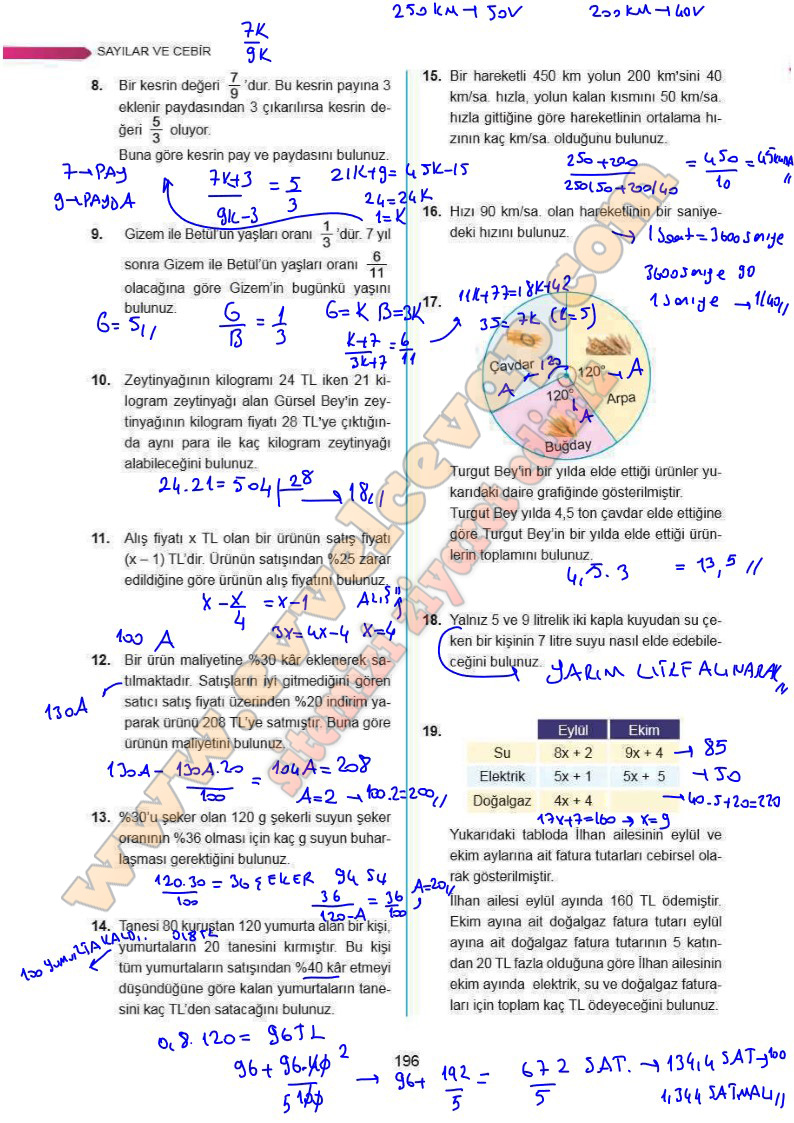 250KM→50V 200KM→40V
7K
9K
SAYILAR VE CEBİR
8. Bir kesrin değeri 7/9 'dur. Bu kesrin payına 3
eklenir paydasından 3 çıkarılırsa kesrin de-
ğeri 5/3 oluyor.
Buna göre kesrin pay ve paydasını bulunuz.
7→PAY
9→PAYDA
7K+3 / 9K-3 = 5/3
21K+9=45K-15
24=24K
1=K
9. Gizem ile Betül'ün yaşları oranı 1/3 'dür. 7 yıl
sonra Gizem ile Betül'ün yaşları oranı 6/11
olacağına göre Gizem'in bugünkü yaşını
bulunuz.
G=5//
G/B = 1/3
G=K B=3K
K+7 / 3K+7 = 6/11
11K+77=18K+42
35=7K (K=5)
10. Zeytinyağının kilogramı 24 TL iken 21 ki-
logram zeytinyağı alan Gürsel Bey'in zey-
tinyağının kilogram fiyatı 28 TL'ye çıktığın-
da aynı para ile kaç kilogram zeytinyağı
alabileceğini bulunuz.
24.21=504 | 28 → 18//
11. Alış fiyatı x TL olan bir ürünün satış fiyatı
(x – 1) TL'dir. Ürünün satışından %25 zarar
edildiğine göre ürünün alış fiyatını bulunuz.
x - x/4 = x-1 ALIŞ
3x=4x-4 x=4
100 A
12. Bir ürün maliyetine %30 kâr eklenerek sa-
tılmaktadır. Satışların iyi gitmediğini gören
satıcı satış fiyatı üzerinden %20 indirim ya-
parak ürünü 208 TL'ye satmıştır. Buna göre
ürünün maliyetini bulunuz.
130A
130A - 130A.20/100 = 104A=208
A=2 →100.2=200//
13. %30'u şeker olan 120 g şekerli suyun şeker
oranının %36 olması için kaç g suyun buhar-
laşması gerektiğini bulunuz.
120.30/100 = 36 ŞEKER 84 SU
36/120-A = 36/100 A=20//
14. Tanesi 80 kuruştan 120 yumurta alan bir kişi,
yumurtaların 20 tanesini kırmıştır. Bu kişi
tüm yumurtaların satışından %40 kâr etmeyi
düşündüğüne göre kalan yumurtaların tane-
sini kaç TL'den satacağını bulunuz.
0,8 TL
100 YUMURTA KALDI..
0,8.120= 96TL
96+96.40/100 → 96+ 192/5 = 672/5 SAT. →134,4 SAT→100
1,344 SATMALI//
15. Bir hareketli 450 km yolun 200 km'sini 40
km/sa. hızla, yolun kalan kısmını 50 km/sa.
hızla gittiğine göre hareketlinin ortalama hı-
zının kaç km/sa. olduğunu bulunuz.
250+200 / 250/50+200/40 = 450/10 =45
16. Hızı 90 km/sa. olan hareketlinin bir saniye-
deki hızını bulunuz.
→ 1 Saat=3600saniye
3600saniye 90
1 saniye →1/40//
17.
Çavdar 120
120° → A
Arpa
120°
A
A
Buğday
Turgut Bey'in bir yılda elde ettiği ürünler yu-
karıdaki daire grafiğinde gösterilmiştir.
Turgut Bey yılda 4,5 ton çavdar elde ettiğine
göre Turgut Bey'in bir yılda elde ettiği ürün-
lerin toplamını bulunuz.
4,5.3 = 13,5//
18. Yalnız 5 ve 9 litrelik iki kapla kuyudan su çe-
ken bir kişinin 7 litre suyu nasıl elde edebile-
ceğini bulunuz.
YARIM LİTRE ALINARAK//
19.
Eylül Ekim
Su 8x + 2 9x + 4 → 85
Elektrik 5x + 1 5x + 5 →50
Doğalgaz 4x + 4 →40.5+20=220
17x+7=160 → x=9
Yukarıdaki tabloda İlhan ailesinin eylül ve
ekim aylarına ait fatura tutarları cebirsel ola-
rak gösterilmiştir.
İlhan ailesi eylül ayında 160 TL ödemiştir.
Ekim ayına ait doğalgaz fatura tutarı eylül
ayına ait doğalgaz fatura tutarının 5 katın-
dan 20 TL fazla olduğuna göre İlhan ailesinin
ekim ayında elektrik, su ve doğalgaz fatura-
ları için toplam kaç TL ödeyeceğini bulunuz.
196
www.evvelcevap.com
sitemizi ziyaret ediniz